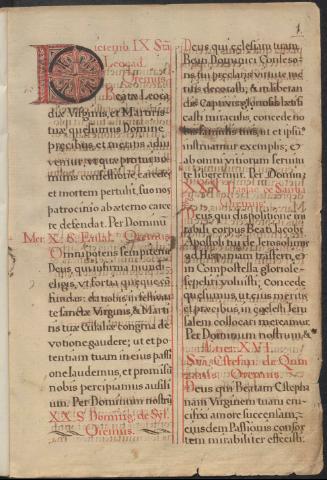 1
Decembris IX Stæ
Leocad.
Oremus.
Beatæ Leoca
diæ Virginis, et Martiris
tuæ quesumus Domine
precibus, et meritis adiu
vemur, ut quæ pro tui no
minis confessione carcere
et mortem pertulit, suo nos
patrocinio ab æterno carce
re defendat. Per Dominũ
Mer. X. S. Eulal. Oremus.
Omnipotens sempiterne
Deus qui infirma mundi
eligis, ut fortia quæque cõ
fundas: da nobis in festivita
te sanctæ Virginis, & Marti
ris tuæ Eulaliæ congrua de
votione gaudere; ut et po
tentiam tuam in eius passi
one laudemus, et promissũ
nobis percipiamus auxili
um. Per Dominum nostrũ
XX. S. Doming. de Syl.
Oremus.
Deus qui eclesiam tuam,
Beati Dominici Confeso
ris tui præclaris virtute me
ritis decorasti, & in liberan
dis Captivis gloriosis lætifi
casti miraculis, concede no
bis famulis tuis, ut et ipsius
instruamur exemplis; et
ab omni vitiorum servitu
te liberemur. Per Dominũ
Oremus.
Deus qui dispositione mi
rabili corpus Beati Iacobi
Apostoli tui de Ierosolimis
ad Hispaniam trasferri, et
in Compostella gloriose
sepeliri voluisti; Concede
quesumus, ut eius meritis
et præcibus, in cælesti Ieru
salem collocari mereamur.
Per Dominum nostrum, &
Deus qui Beatam Estepha
nam Virginem tuam cru
cifixi amore succensam,
eiusdem Passionis consor
tem mirabiliter effecisti: